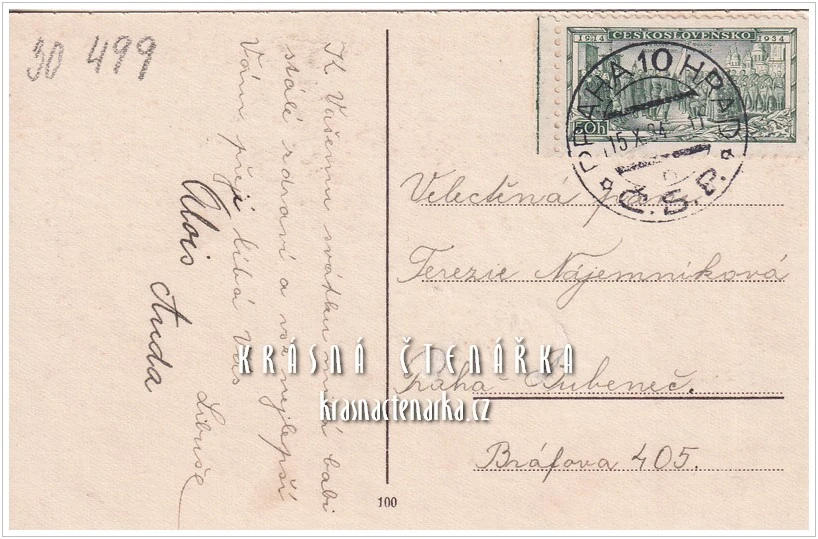 30 499
K Vašemu svátku milá babi
stálé zdraví a vše nejlepší
Vám přeji líbá Vás
Libuše
Alois Anda
ČESKOSLOVENSKO
1914 1934
50h
PRAHA 10 HRAD
15.X.34 - 11
Č.S.P.
Velectěná paní
Terezie Nájemníková
Praha-Bubeneč.
Bráfova 405.
KRÁSNÁ ČTENÁŘKA
krasnactenarka.cz
100